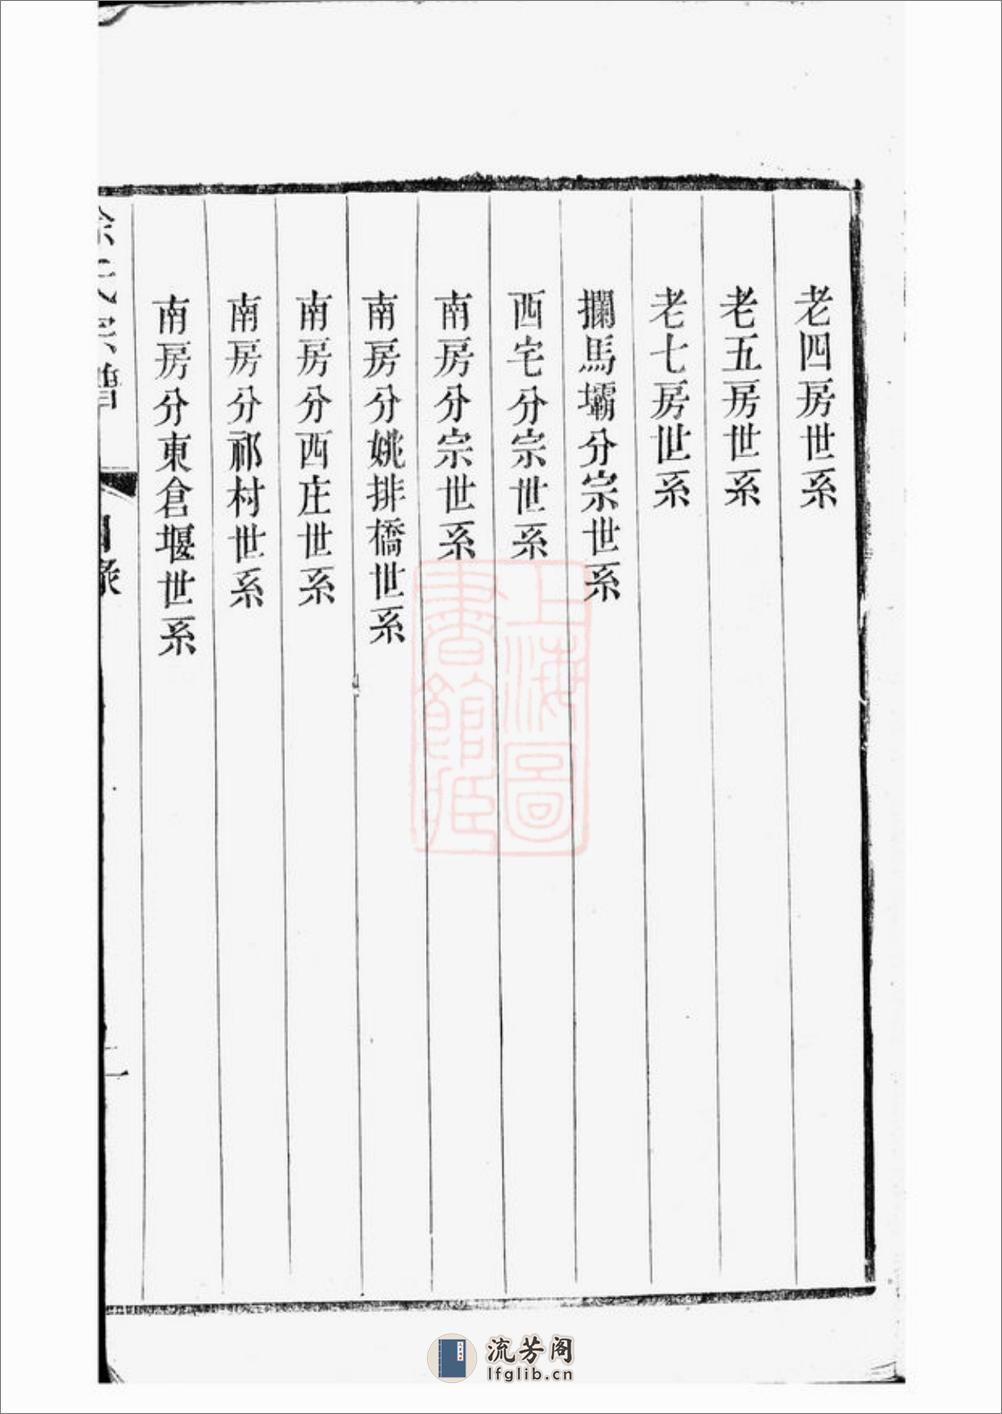 老四房世系
老五房世系
老七房世系
攔馬壩分宗世系
西宅分宗世系
南房分宗世系
南房分姚排橋世系
南房分西庄世系
南房分祁村世系
南房分東倉堰世系
氏宗譜
目錄
二
上海圖
書館
流芳阁
lfglib.cn